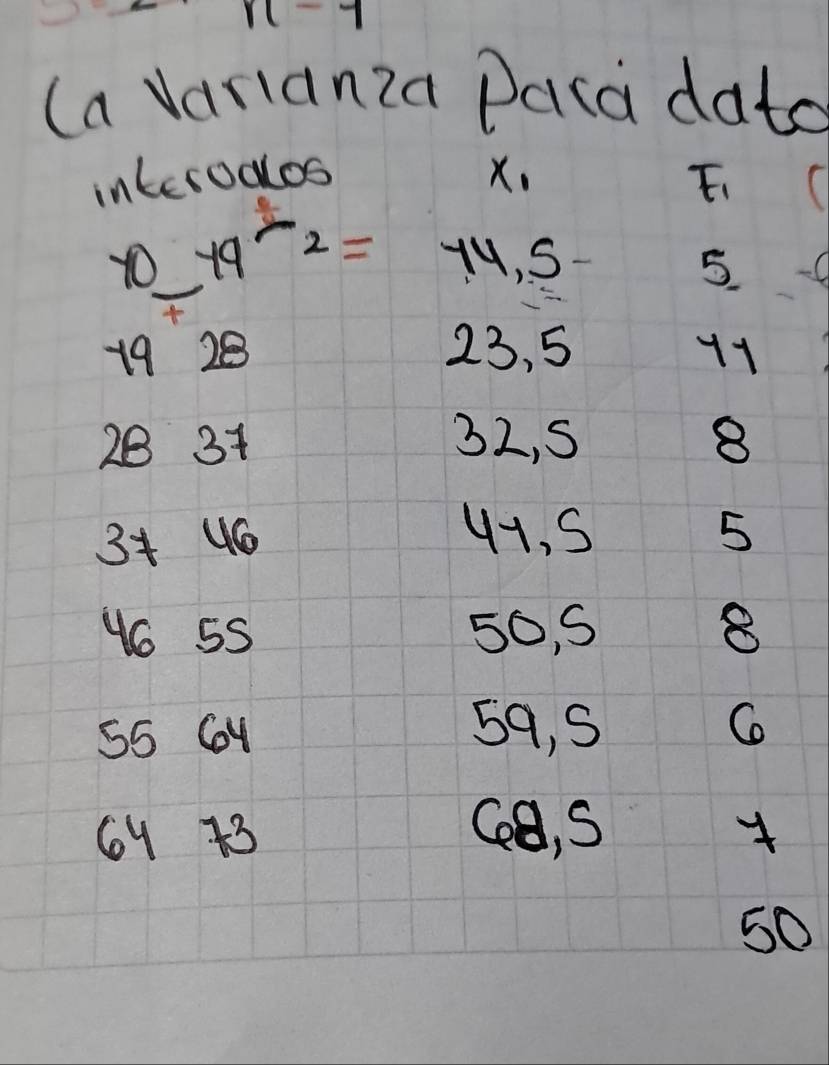 n - 1
La Varianza Para dato
intervalos X₁ F₁ (
10 _ 19 ÷ 2 = 14,5 - 5
+
19 28 23,5 11
28 37 32,5 8
37 46 41,5 5
46 55 50,5 8
55 64 59,5 6
64 73 68,5 7
50